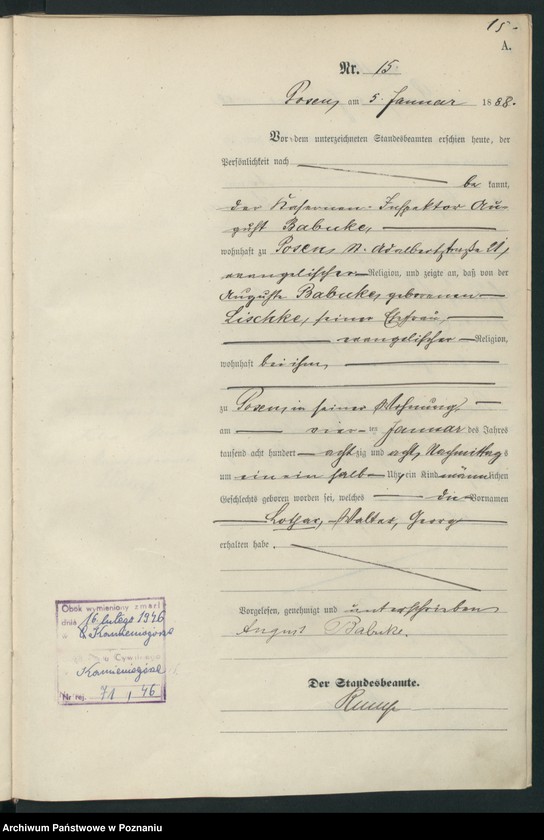 15.
A.
Nr. 15
Posen, am 5. Januar 1888.
Vor dem unterzeichneten Standesbeamten erschien heute, der
Persönlichkeit nach
be kannt,
der Kasernen-Inspektor Au-
gust Babuke,
wohnhaft zu Posen, St. Adalbertstraße
evangelischer Religion, und zeigte an, daß von der
Auguste Babuke, geborenen
Lischke, seiner Ehefrau,
evangelischer Religion,
wohnhaft bei ihm,
zu Posen, in seiner Wohnung
am vier ten Januar des Jahres
tausend acht hundert achtzig und acht, Nachmittags
um ein ein halb Uhr, ein Kind männlichen
Geschlechts geboren worden sei, welches die Vornamen
Lothar, Walter, Georg
erhalten habe.
Vorgelesen, genehmigt und unterschrieben
August Babuke.
Der Standesbeamte.
Obok wymieniony zmarł
dnia 16 lutego 1946
w Kamieniogórze
Cywilnego
Kamieniogórze
Nr rej. 71 / 46
Archiwum Państwowe w Poznaniu